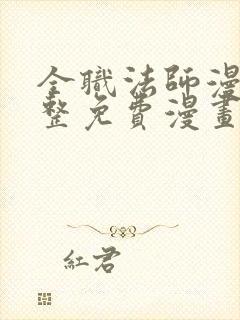 全職法師漫
整免費漫畫
紅君